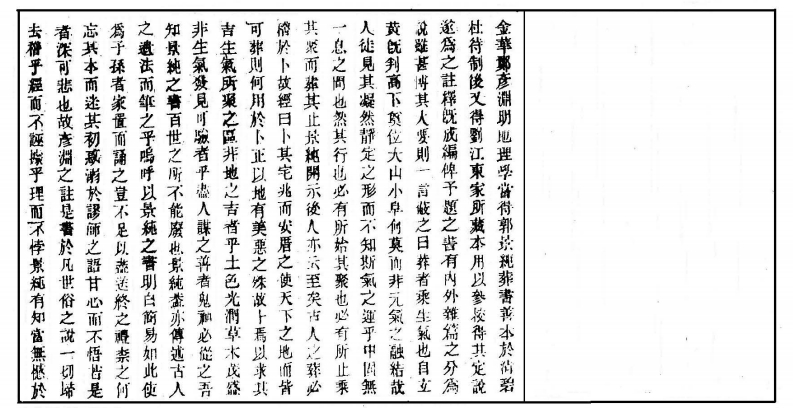 金華鄭彥淵明地理學嘗得郭景純葬書善本於清碧
杜待制後又得劉江東家所藏本用以參校得其定說
遂為之註釋旣成編俾予題之書有內外雜篇之分為
說雖甚博其大要則一言蔽之曰葬者乘生氣也自玄
黃旣判高下奠位大山小阜何莫而非元氣之融結哉
人徒見其凝然靜定之形而不知斯氣之運乎中固無
一息之間也然其行也必有所始其聚也必有所止乘
其聚而葬其止景純開示後人亦云至矣古人之葬必
稽於卜故經曰卜其宅兆而安厝之使天下之地而皆
可葬則何用於卜正以地有美惡之殊故卜焉以求其
吉生氣所聚之區非地之吉者乎土色光潤草木茂盛
非生氣發見可驗者乎盡人謀之善者鬼神必從之吾
知景純之書百世之所不能廢也景純蓋亦傳述古人
之遺法而筆之乎嗚呼以景純之書明白簡易如此使
為子孫者家置而誦之豈不足以盡送終之禮柰之何
忘其本而迷其初惑溺於謬師之語甘心而不悟若是
者深可悲也故彥淵之註是書於凡世俗之說一切歸
去稽乎經而不誣揆乎理而不悖景純有知當無憾於